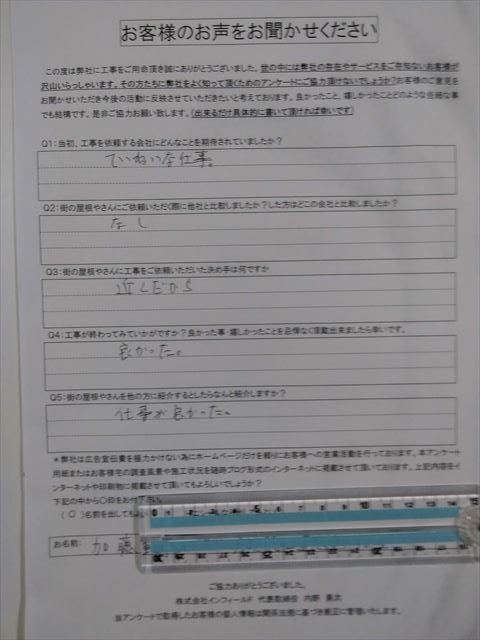 お客様のお声をお聞かせください
この度は弊社に工事をご用命頂き誠にありがとうございました。世の中には弊社の存在やサービスをご存知ないお客様が
沢山いらっしゃいます。その方たちに弊社をよく知って頂くためのアンケートにご協力頂けないでしょうか？お客様のご意見を
お聞かせいただき今後の活動に反映させていただきたいと考えております。良かったこと、嬉しかったことどのような些細な事
でも結構です。是非ご協力お願い致します。（出来るだけ具体的に書いて頂ければ幸いです）
Q1：当初、工事を依頼する会社にどんなことを期待されていましたか？
ていねいな仕事。
Q2：街の屋根やさんにご依頼いただく際に他社と比較しましたか？した方はどこの会社と比較しましたか？
なし
Q3：街の屋根やさんに工事をご依頼いただいた決め手は何ですか
近くだから
Q4：工事が終わってみていかがですか？良かった事・嬉しかったことを忌憚なく頂戴出来ましたら幸いです。
良かった。
Q5：街の屋根やさんを他の方に紹介するとしたらなんと紹介しますか？
仕事が良かった。
＊弊社は広告宣伝費を極力かけない為にホームページだけを頼りにお客様への営業活動を行っております。本アンケート
用紙またはお客様宅の調査風景や施工状況を随時ブログ形式のインターネットに掲載させて頂いております。上記内容をイ
ンターネットや印刷物に掲載させて頂いてもよろしいでしょうか？
下記の中から〇印をお付け下さい
（〇）名前を出しても
0 6 7 8 9 10 11 12 13 14 15
お名前： 加藤
ご協力ありがとうございました。
株式会社インフィールド 代表取締役 内野 勇次
当アンケートで取得したお客様の個人情報は関係法規に基づき厳正に管理いたします。